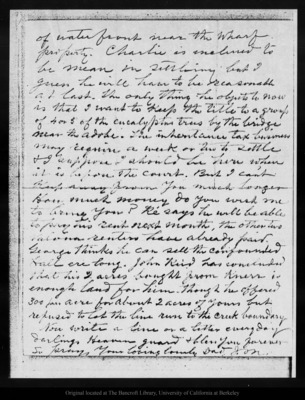 of water front near the wharf
property. Charlie is inclined to
be mean in settling but I
guess he will have to be reasonable
at last. The only thing he objects to now
is that I want to keep the title to a group
of 4 or 5 of the eucalyptus trees by the bridge
near the adobe. The inheritance tax business
may require a week or two to settle
& I suppose I should be here when
it is before the Court. But I can't
keep away from you much longer
How much money do you want me
to bring you? He says he will be able
to pay his rent next month, the other two
renters have already paid.
George thinks he can sell the
Hall ere long. John Reid has concluded
that his 2 acres bought from is
enough land for him. Though he offered
300 per acre for about 2 acres of yours but
refused to let the line run to the creek boundary
Now write a line or a letter everyday
darlings Heaven guard & bless you forever
So prays Your loving lonely Dad
Original located at The Bancroft Library, University of California at Berkeley